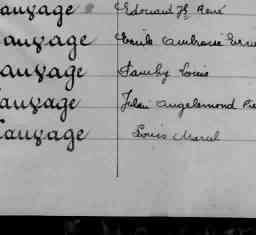 auvage Edouard Jh René
auvage Emile Ambroise
auvage Louis
auvage Jules Angelemond
auvage Louis Marcel